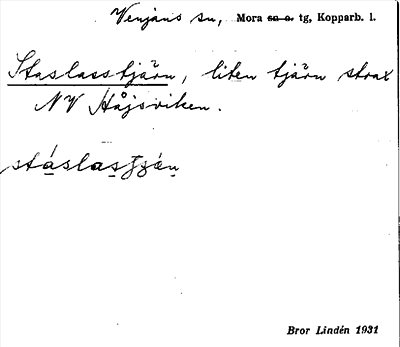 Venjans sn, Mora sn o. tg, Kopparb. l.
Staslasstjärn, liten tjärn strax
NV Håjsviken.
Bror Lindén 1931